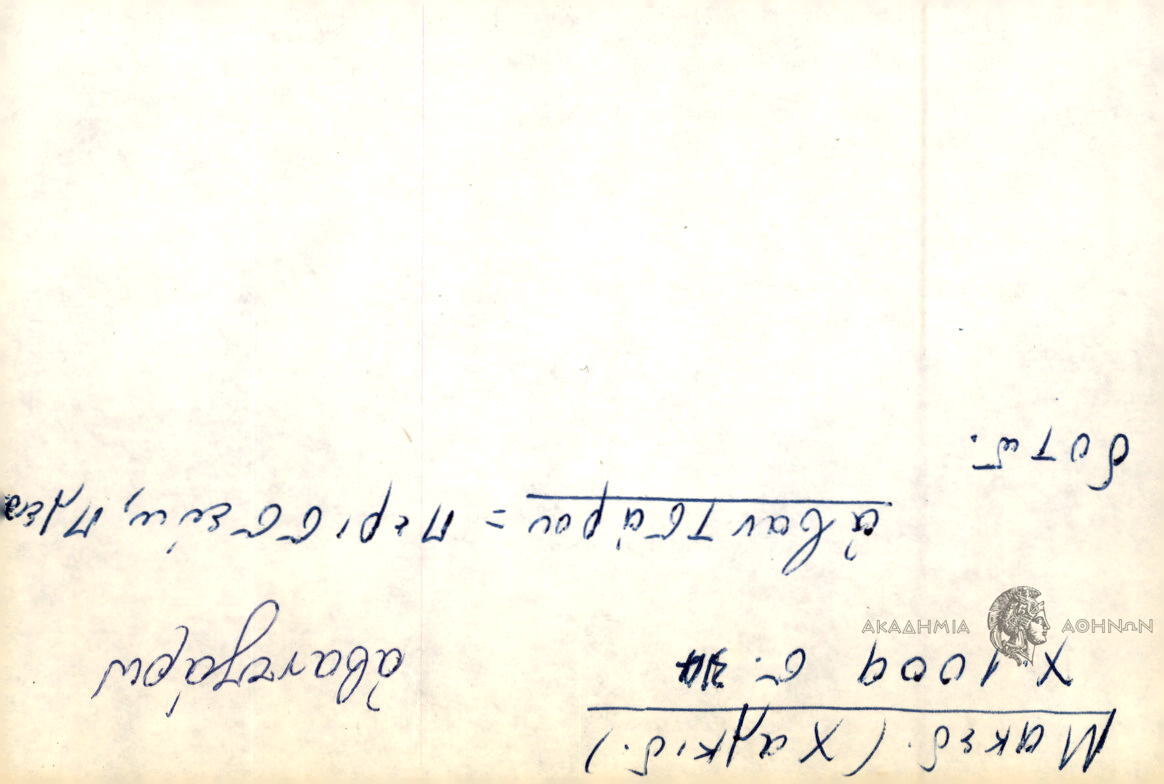 Μακεδ. (Χαλκιδ.)
Χ 1009 σ. 34
ἀβαντζάρω
ἀβαντσάρου = περισσεύω, πλεο
δοτῶ.
ΑΚΑΔΗΜΙΑ ΑΘΗΝΩΝ